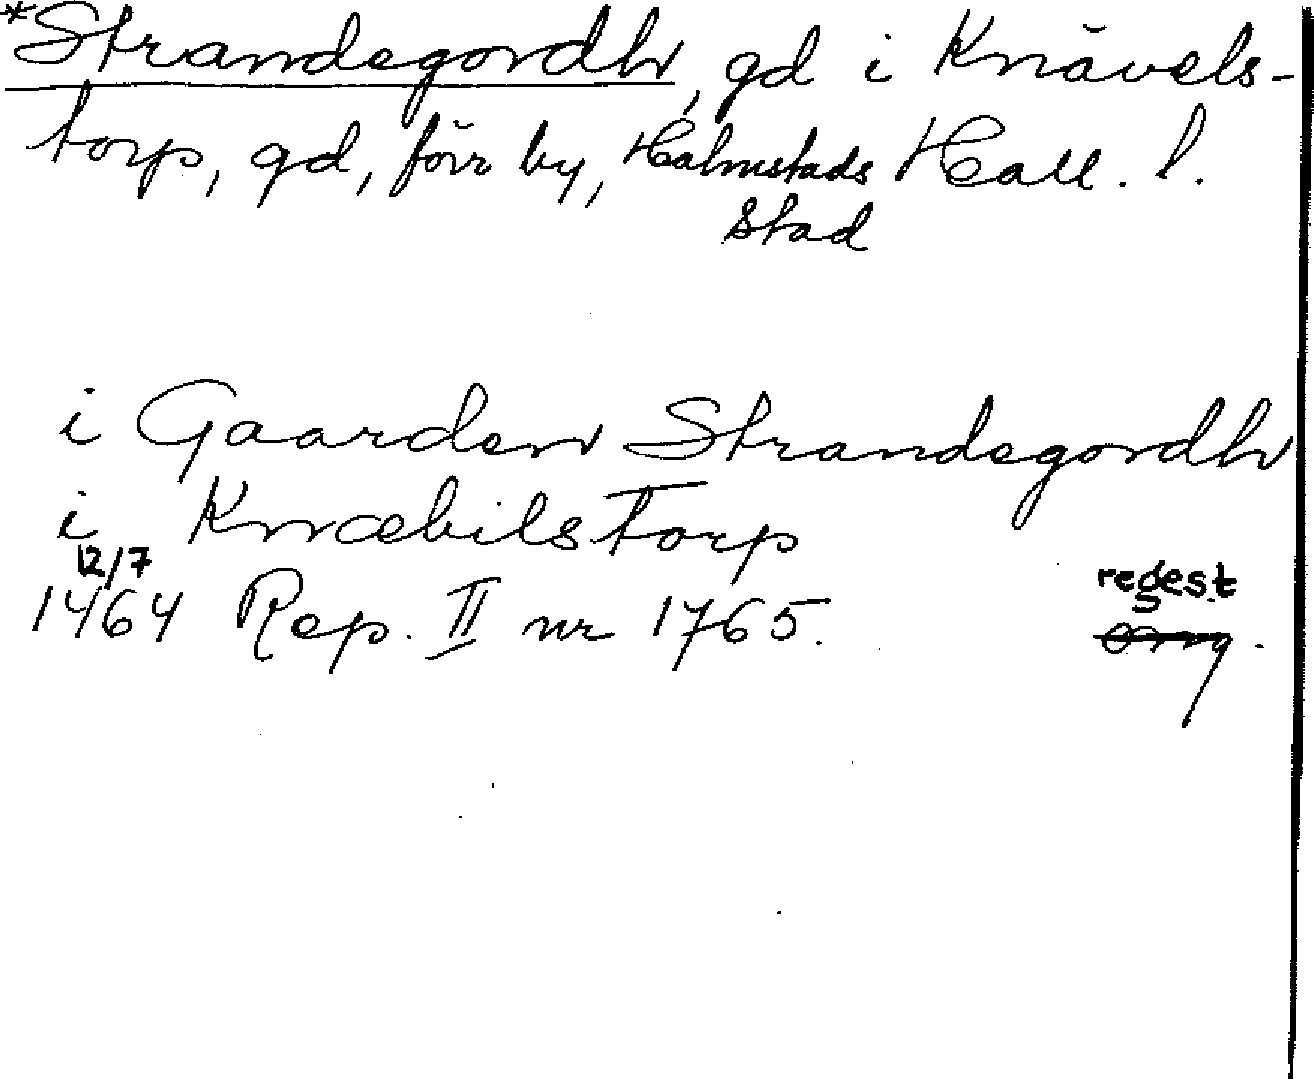 *Strandegordh, gd i Knävels-
torp, gd, förr by, Halmstads Hall. l.
stad
i Gaarden Strandegordh
i Knæbilstorp
12/7
1464 Rep. II nr 1765.
regest
orig.